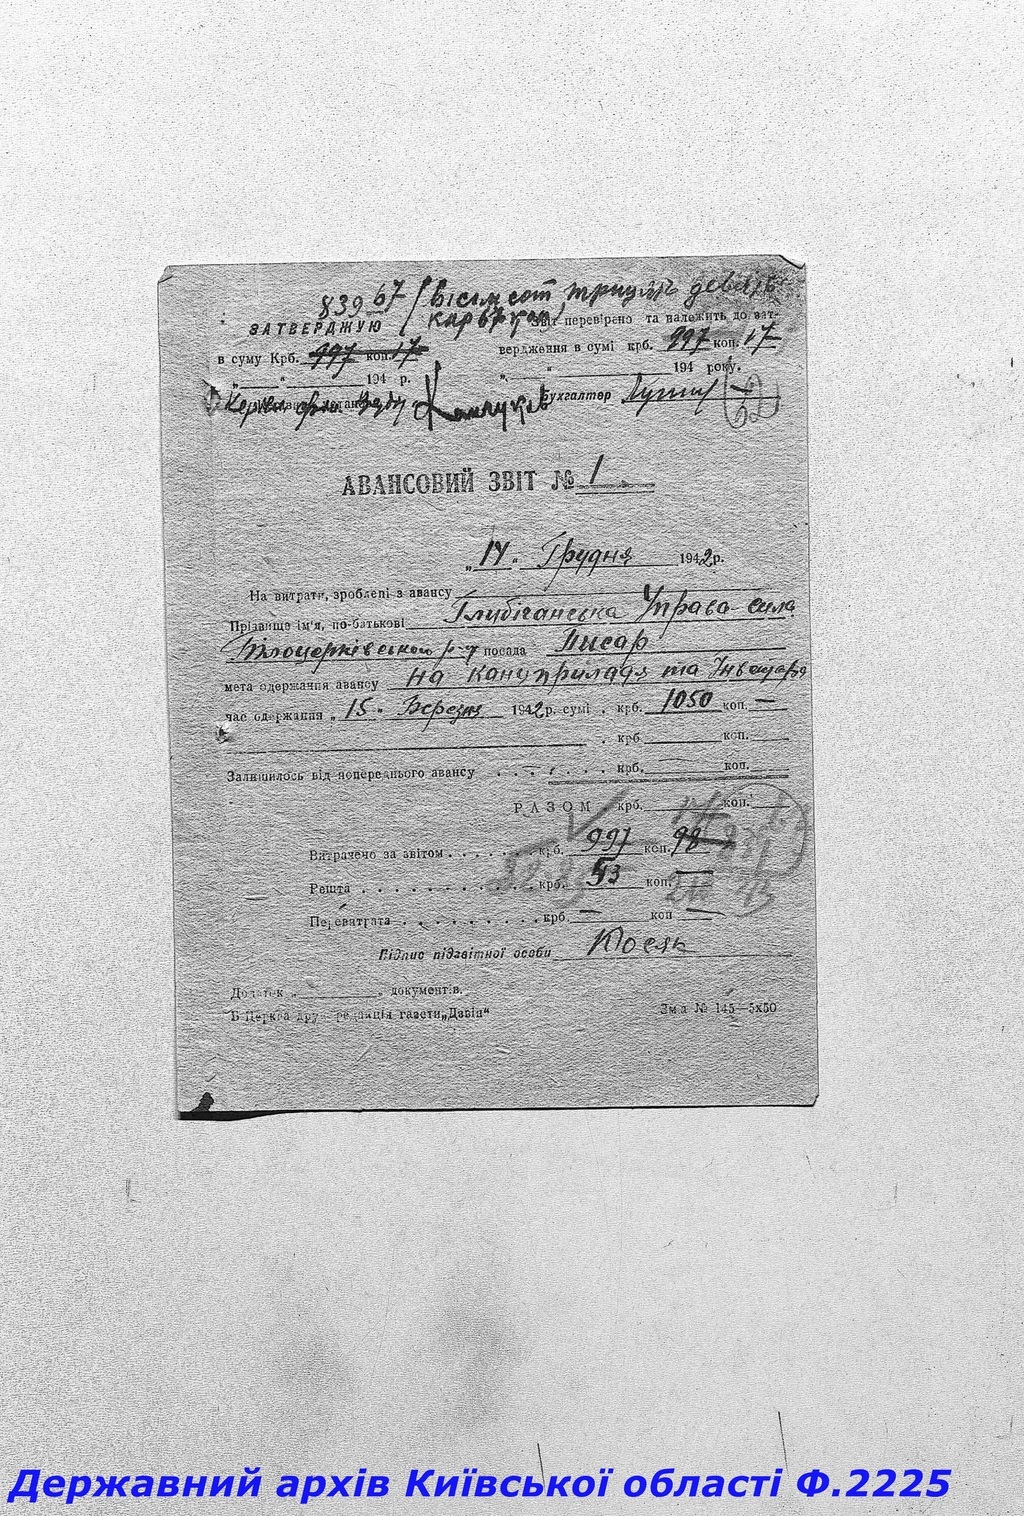 839 67 / Вісімсот тридцять девять
карб.
ЗАТВЕРДЖУЮ
Звіт перевірено та належить до зат-
в суму Крб. 997 коп. 17
вердження в сумі крб. 997 коп. 17
„ “ 194 р.
„ “ 194 року.
Бухгалтер
62
АВАНСОВИЙ ЗВІТ № 1
„14“ Грудня 1942 р.
На витрати, зроблені з авансу
Прізвище ім'я, по-батькові Глибочанська Управа села
Білоцерківського р-ну посада Писар
мета одержання авансу на канцприладя та Інвентаря
час одержання „15“ Березня 1942 р. сумі . крб. 1050 коп. —
. крб. коп.
Залишилось від попереднього авансу . . . . . . . крб. коп.
РАЗОМ крб. коп.
Витрачено за звітом . . . . . . . крб. 997 коп. 98
Решта . . . . . . . . . . . . крб. 53 коп. —
Перевитрата . . . . . . . . . крб. — коп —
Підпис підзвітної особи Косяк
Додаток „ “ документів.
Б Церква друк. редакція газети „Дзвін“
Зам № 145—5x50
Державний архів Київської області Ф.2225